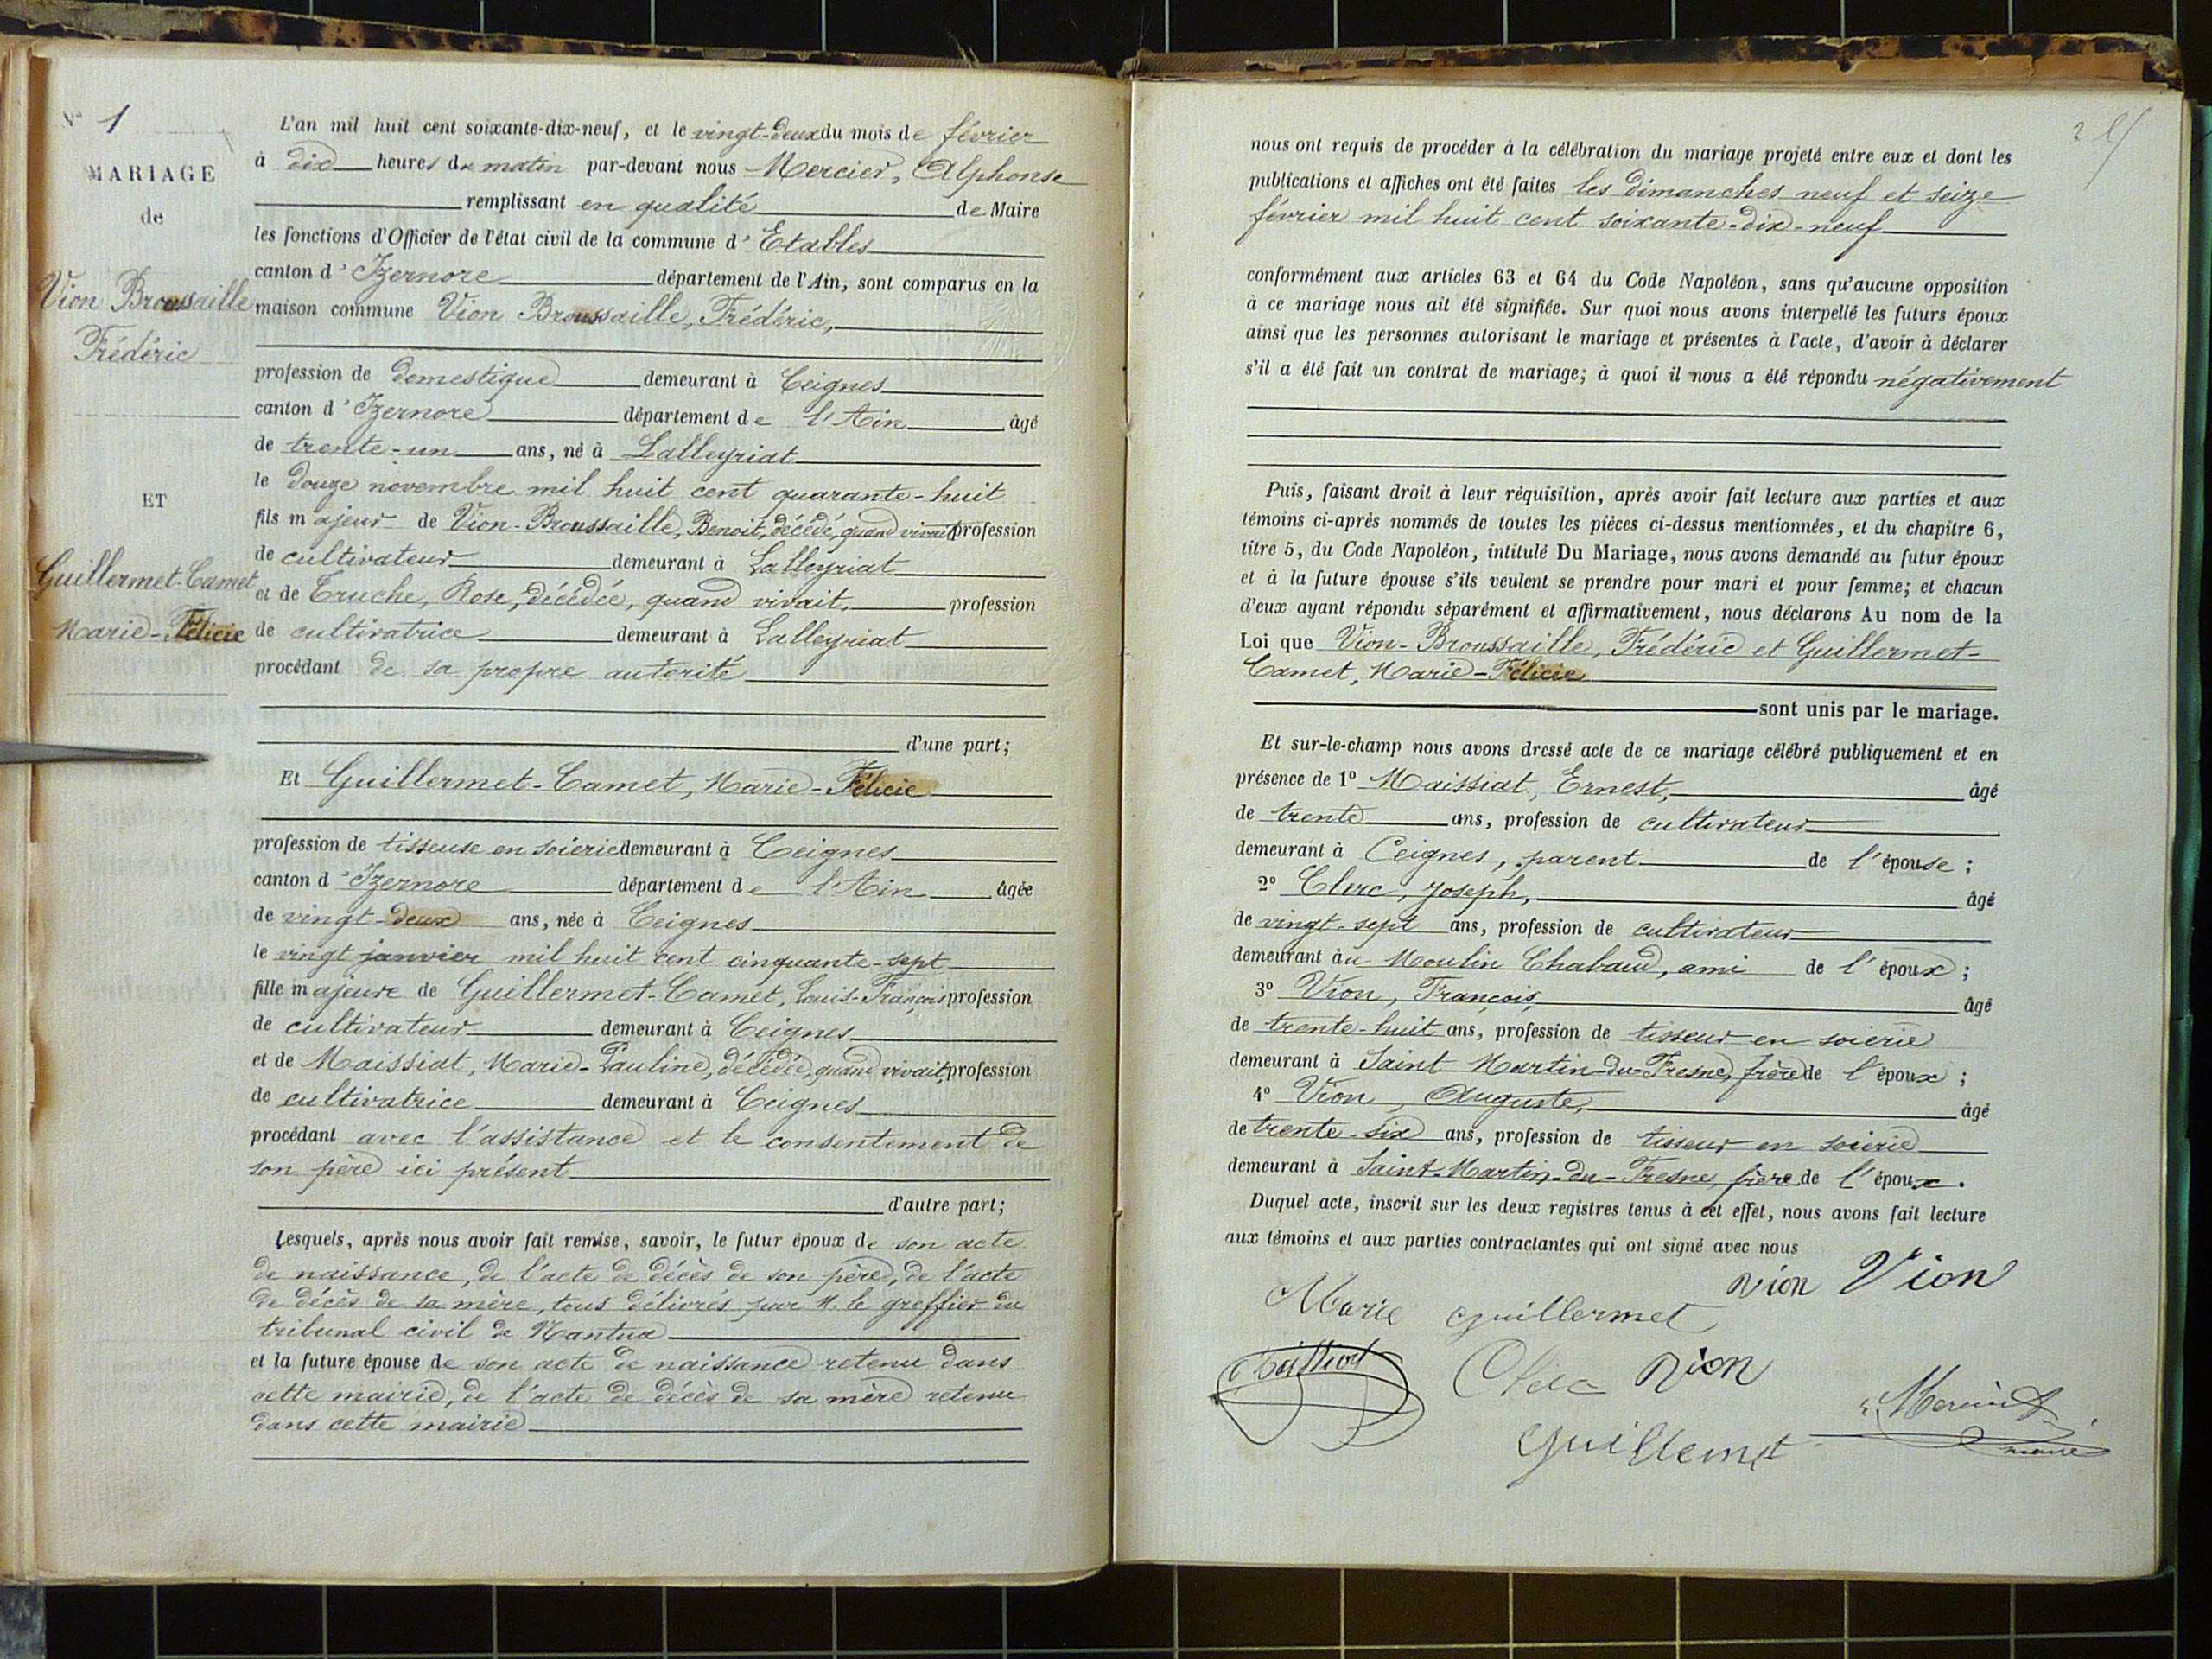 N° 1
MARIAGE
de
Vion Broussaille
Frédéric
ET
Guillermet-Camet
Marie-Félicie
L'an mil huit cent soixante-dix-neuf, et le vingt-deux du mois de février
à dix heures du matin par-devant nous Mercier, Alphonse
remplissant en qualité de Maire
les fonctions d'Officier de l'état civil de la commune d'Etables
canton d'Izernore département de l'Ain, sont comparus en la
maison commune Vion Broussaille, Frédéric,
profession de domestique demeurant à Ceignes
canton d'Izernore département de l'Ain âgé
de trente-un ans, né à Lalleyriat
le douze novembre mil huit cent quarante-huit
fils majeur de Vion-Broussaille, Benoit, décédé, quand vivait profession
de cultivateur demeurant à Lalleyriat
et de Truche, Rose, décédée, quand vivait, profession
de cultivatrice demeurant à Lalleyriat
procédant de sa propre autorité
d'une part;
Et Guillermet-Camet, Marie-Félicie
profession de tisseuse en soierie demeurant à Ceignes
canton d'Izernore département de l'Ain âgée
de vingt-deux ans, née à Ceignes
le vingt janvier mil huit cent cinquante-sept
fille majeure de Guillermet-Camet, Louis-François profession
de cultivateur demeurant à Ceignes
et de Maissiat, Marie-Pauline, décédée, quand vivait, profession
de cultivatrice demeurant à Ceignes
procédant avec l'assistance et le consentement de
son père ici présent
d'autre part;
Lesquels, après nous avoir fait remise, savoir, le futur époux de son acte
de naissance, de l'acte de décès de son père, de l'acte
de décès de sa mère, tous délivrés par M. le greffier du
tribunal civil de Nantua
et la future épouse de son acte de naissance retenu dans
cette mairie, de l'acte de décès de sa mère retenu
dans cette mairie
nous ont requis de procéder à la célébration du mariage projeté entre eux et dont les
publications et affiches ont été faites les dimanches neuf et seize
février mil huit cent soixante-dix-neuf
conformément aux articles 63 et 64 du Code Napoléon, sans qu'aucune opposition
à ce mariage nous ait été signifiée. Sur quoi nous avons interpellé les futurs époux
ainsi que les personnes autorisant le mariage et présentes à l'acte, d'avoir à déclarer
s'il a été fait un contrat de mariage; à quoi il nous a été répondu négativement
Puis, faisant droit à leur réquisition, après avoir fait lecture aux parties et aux
témoins ci-après nommés de toutes les pièces ci-dessus mentionnées, et du chapitre 6,
titre 5, du Code Napoléon, intitulé Du Mariage, nous avons demandé au futur époux
et à la future épouse s'ils veulent se prendre pour mari et pour femme; et chacun
d'eux ayant répondu séparément et affirmativement, nous déclarons Au nom de la
Loi que Vion-Broussaille, Frédéric et Guillermet-
Camet, Marie-Félicie
sont unis par le mariage.
Et sur-le-champ nous avons dressé acte de ce mariage célébré publiquement et en
présence de 1° Maissiat, Ernest, âgé
de trente ans, profession de cultivateur
demeurant à Ceignes, parent de l'épouse;
2° Clerc, Joseph, âgé
de vingt-sept ans, profession de cultivateur
demeurant au Moulin Chabaud, ami de l'époux;
3° Vion, François, âgé
de trente-huit ans, profession de tisseur en soierie
demeurant à Saint Martin-du-Fresne, frère de l'époux;
4° Vion, Auguste, âgé
de trente-six ans, profession de tisseur en soierie
demeurant à Saint-Martin-du-Fresne, frère de l'époux.
Duquel acte, inscrit sur les deux registres tenus à cet effet, nous avons fait lecture
aux témoins et aux parties contractantes qui ont signé avec nous
vion Vion
Marie guillermet
Maissiat Clerc vion
Mercier
maire
Guillemet